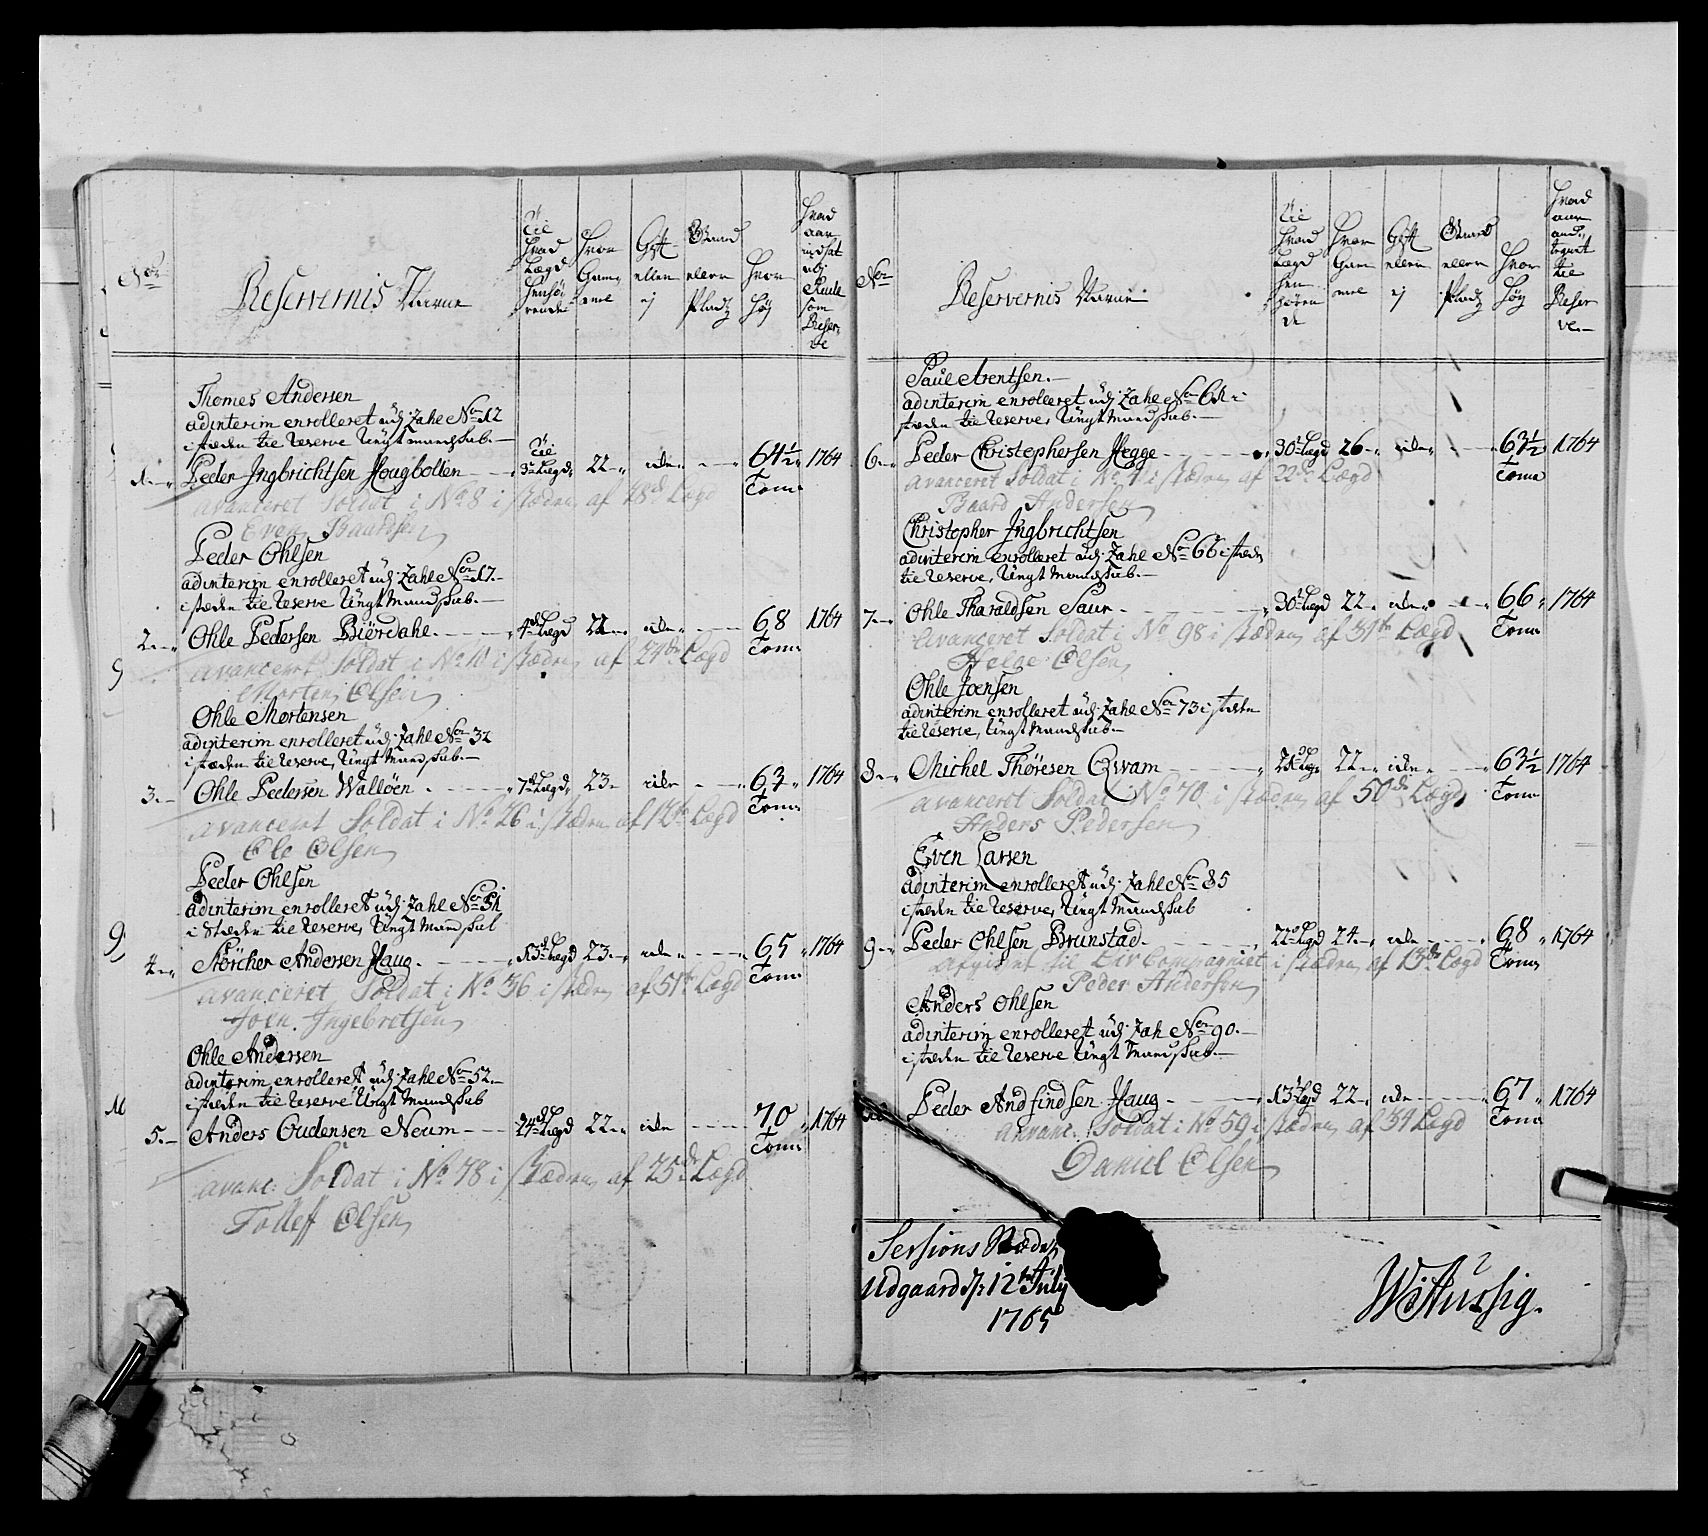 No
Reservernis Navne
Til
hvad
Lægd
henhö-
rende
hvor
Gam-
mel
Gift
eller
ej
Gaard
eller
Pladz
hvor
höy
hvad
aar
indsat
udj
Rulle
som
Reser-
ve
Thomes Andersen
adinterim enrolleret udj Zahl No 12
i stæden til reserve Ungt mandskab.
1. Peder Ingbrichtsen Hougbollen 3 Lægd 22 64½ 1764
Tom
avanceret Soldat i No 8 i stæden af 28 Lægd
Even Baardsen
Peder Ohlsen
adinterim enrolleret udj Zahl No 17.
i stæden til reserve Ungt Mandskab.
2. Ohle Pedersen Biördahl. 4 Lægd 22 68 1764
Tom
avanceret Soldat i No 10 i stæden af 24 Lægd
Morten Olsen
Ohle Mortensen
adinterim enrolleret udj Zahl No 32
i stæden til reserve, Ungt Mandskab.
3. Ohle Pedersen Wallöen 7 Lægd 23 63 1764
Tom
avanceret Soldat i No 26 i stæden af 12 Lægd
Ole Olsen
Peder Ohlsen
adinterim enrolleret udj Zahl No 51
i Stæden til reserve, Ungt Mandskab
4. Störcher Andersen Haug. 13 Lægd 23 65 1764
Tom
avanceret Soldat i No 36 i stæden af 51 Lægd
Joen Ingebretsen
Ohle Andersen
adinterim enrolleret udj Zahl No 52.
i stæden til reserve Ungt Mandskab
5. Anders Gudensen Neum 24 Lægd 22 70 1764
Tom
avanc: Soldat i No 78 i stæden af 25 Lægd
Tollef Olsen
No
Reservernis Navne
Til
hvad
Lægd
hen
hören
de
hvor
Gam
mel
Gift
eller
ej
Gaard
eller
Pladz
hvor
höy
hvad
aar
til
Reser
ve.
Paul Arentsen.
adinterim enrolleret udj Zahl No 61 i
stæden til reserve, Ungt Mandskab.
6. Peder Christophersen Hegge 30 Lægd 26 63½ 1764
Tom
avanceret Soldat i No 1 i stæden af 22 Lægd
Baard Andersen
Christopher Ingbrichtsen
adinterim enrolleret udj Zahl No 66 i stæden
til reserve, Ungt Mandskab.
7. Ohle Tharaldsen Saur 30 Lægd 22 66 1764
Tom
avanceret Soldat i No 98 i stæden af 31 Lægd
Helge Olsen
Ohle Joensen
adinterim enrolleret udj Zahl No 73 i stæden
til reserve, Ungt Mandskab.
8. Michel Thöresen Qwam 22 63½ 1764
Tom
avanceret Soldat i No 70 i stæden af 50 Lægd
Anders Pedersen
Even Larsen
adinterim enrolleret udj Zahl No 85
i stæden til reserve, Ungt Mandskab
9. Peder Ohlsen Brunstad. 22 Lægd 24 68 1764
Tom
afgivet til Liv Compagniet i stæden af 13 Lægd
Peder Andersen
Anders Ohlsen
adinterim enrolleret udj Zahl No 90.
i stæden til reserve Ungt Mandskab.
Peder Andfindsen Haug 13 Lægd 22 67 1764
Tom
avanc: Soldat i No 59 i stæden af 34 Lægd
Daniel Olsen
Sessions Stædet
Udgaard d. 12 July
1765